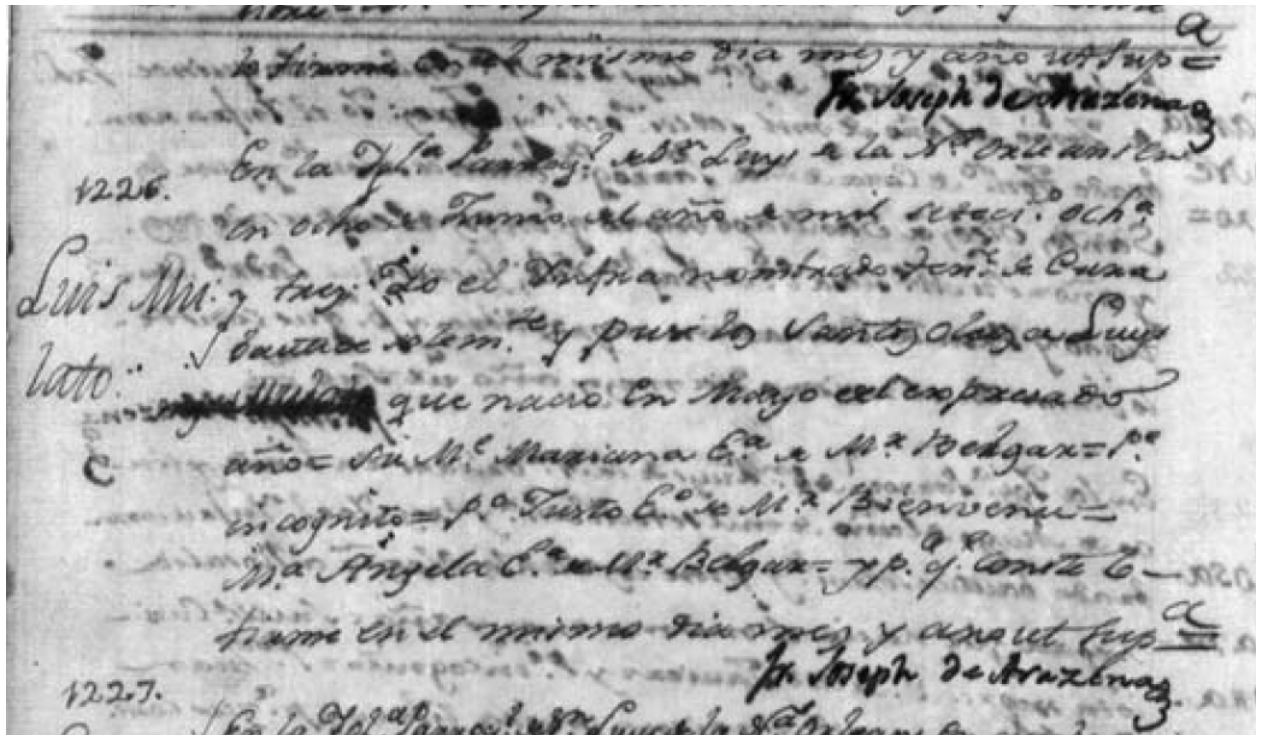 lo firmé en el mismo dia mes y año ut sup.a =
Fr. Joseph de Arazena
1226.
En la Ygl.a Parroq.l de Sn. Luys de la N.a Orleans en
en ocho de Junio del año de mil seteci.s och.a
Luis Mu:
y tres. Yo el Infra nombrado Then.te de Cura
lato..
bautize solem.te y puse los Santos oleos a Luys
que nacio en Mayo del expresado
año = su M.e Mariana E.a de M.r Belgar = P.e
incognito = P.o Justo E.o de M.r Bienvenu =
M.a Angela E.a de M.r Belgar = y p.a q.e conste lo
firmé en el mismo dia mes y año ut sup.a =
Fr. Joseph de Arazena
1227.
En la Ygl.a Parroq.l de Sn. Luys de la N.a Orleans en